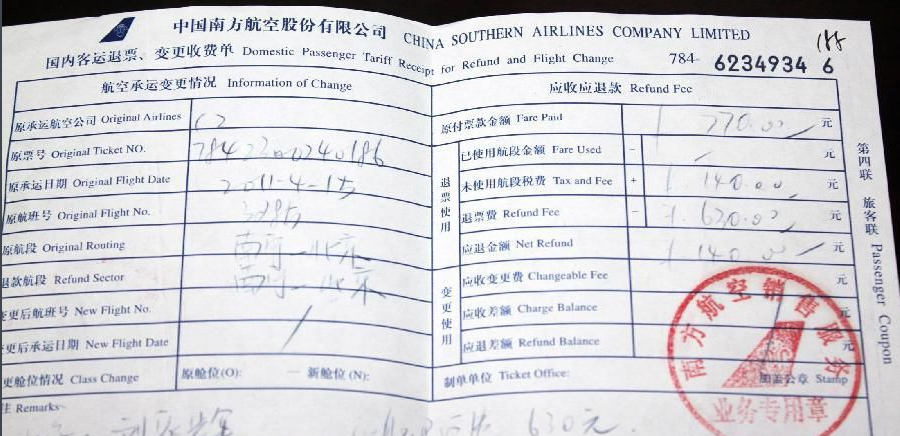 中国南方航空股份有限公司 CHINA SOUTHERN AIRLINES COMPANY LIMITED
国内客运退票、变更收费单 Domestic Passenger Tariff Receipt for Refund and Flight Change 784- 6234934 6
航空承运变更情况 Information of Change
原承运航空公司 Original Airlines CZ
原票号 Original Ticket NO.
原承运日期 Original Flight Date 2011-4-15
原航班号 Original Flight No.
原航段 Original Routing 南宁-北京
退款航段 Refund Sector 南宁-北京
变更后航班号 New Flight No.
变更后承运日期 New Flight Date
更舱位情况 Class Change 原舱位(O): 一 新舱位(N):
注 Remarks
应收应退款 Refund Fee
原付票款金额 Fare Paid 770.00 元
退票使用
已使用航段金额 Fare Used - 元
未使用航段税费 Tax and Fee + 140.00 元
退票费 Refund Fee - 630.00 元
应退金额 Net Refund 140.00 元
变更使用
应收变更费 Changeable Fee 元
应收差额 Charge Balance 元
应退差额 Refund Balance 元
制单单位 Ticket Office: 加盖公章 Stamp
630元.
第四联 旅客联 Passenger Coupon
南方航空销售服务
业务专用章